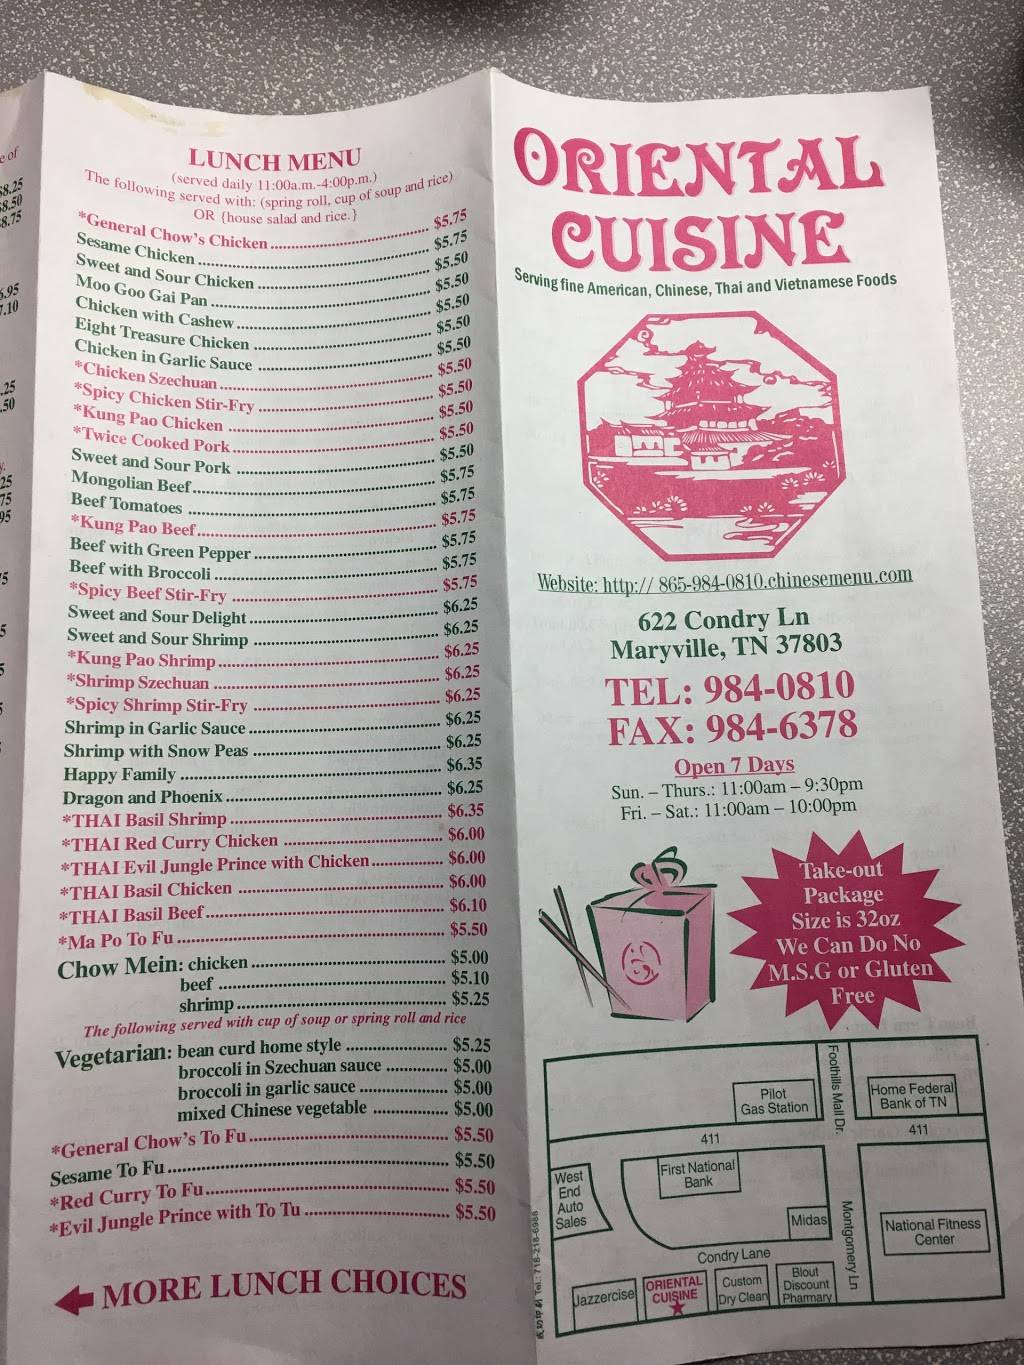 e of
$8.25
$8.50
$8.75
6.95
7.10
.25
.50
y.
25
75
95
LUNCH MENU
(served daily 11:00a.m.-4:00p.m.)
The following served with: (spring roll, cup of soup and rice)
OR {house salad and rice.}
*General Chow's Chicken $5.75
Sesame Chicken $5.75
Sweet and Sour Chicken $5.50
Moo Goo Gai Pan $5.50
Chicken with Cashew $5.50
Eight Treasure Chicken $5.50
Chicken in Garlic Sauce $5.50
*Chicken Szechuan $5.50
*Spicy Chicken Stir-Fry $5.50
*Kung Pao Chicken $5.50
*Twice Cooked Pork $5.50
Sweet and Sour Pork $5.50
Mongolian Beef $5.75
Beef Tomatoes $5.75
*Kung Pao Beef $5.75
Beef with Green Pepper $5.75
Beef with Broccoli $5.75
*Spicy Beef Stir-Fry $5.75
Sweet and Sour Delight $6.25
Sweet and Sour Shrimp $6.25
*Kung Pao Shrimp $6.25
*Shrimp Szechuan $6.25
*Spicy Shrimp Stir-Fry $6.25
Shrimp in Garlic Sauce $6.25
Shrimp with Snow Peas $6.25
Happy Family $6.35
Dragon and Phoenix $6.25
*THAI Basil Shrimp $6.35
*THAI Red Curry Chicken $6.00
*THAI Evil Jungle Prince with Chicken $6.00
*THAI Basil Chicken $6.00
*THAI Basil Beef $6.10
*Ma Po To Fu $5.50
Chow Mein: chicken $5.00
beef $5.10
shrimp $5.25
The following served with cup of soup or spring roll and rice
Vegetarian: bean curd home style $5.25
broccoli in Szechuan sauce $5.00
broccoli in garlic sauce $5.00
mixed Chinese vegetable $5.00
*General Chow's To Fu $5.50
Sesame To Fu $5.50
*Red Curry To Fu $5.50
*Evil Jungle Prince with To Tu $5.50
MORE LUNCH CHOICES
ORIENTAL
CUISINE
Serving fine American, Chinese, Thai and Vietnamese Foods
Website: http:// 865-984-0810.chinesemenu.com
622 Condry Ln
Maryville, TN 37803
TEL: 984-0810
FAX: 984-6378
Open 7 Days
Sun. – Thurs.: 11:00am – 9:30pm
Fri. – Sat.: 11:00am – 10:00pm
Take-out
Package
Size is 32oz
We Can Do No
M.S.G or Gluten
Free
Pilot
Gas Station
Foothills Mall Dr.
Home Federal
Bank of TN
411
411
West
End
Auto
Sales
First National
Bank
Midas
Montgomery Ln
National Fitness
Center
Condry Lane
Jazzercise
ORIENTAL
CUISINE
Custom
Dry Clean
Blout
Discount
Pharmary
Tel.: 718-218-6988